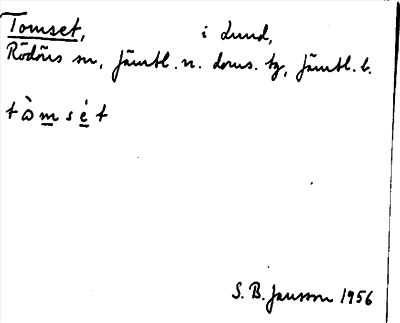 Tomset, i Lund,
Rödöns sn, Jämtl. n. doms. tg, Jämtl. l.
t ὼ m s é t
S. B. Jansson 1956